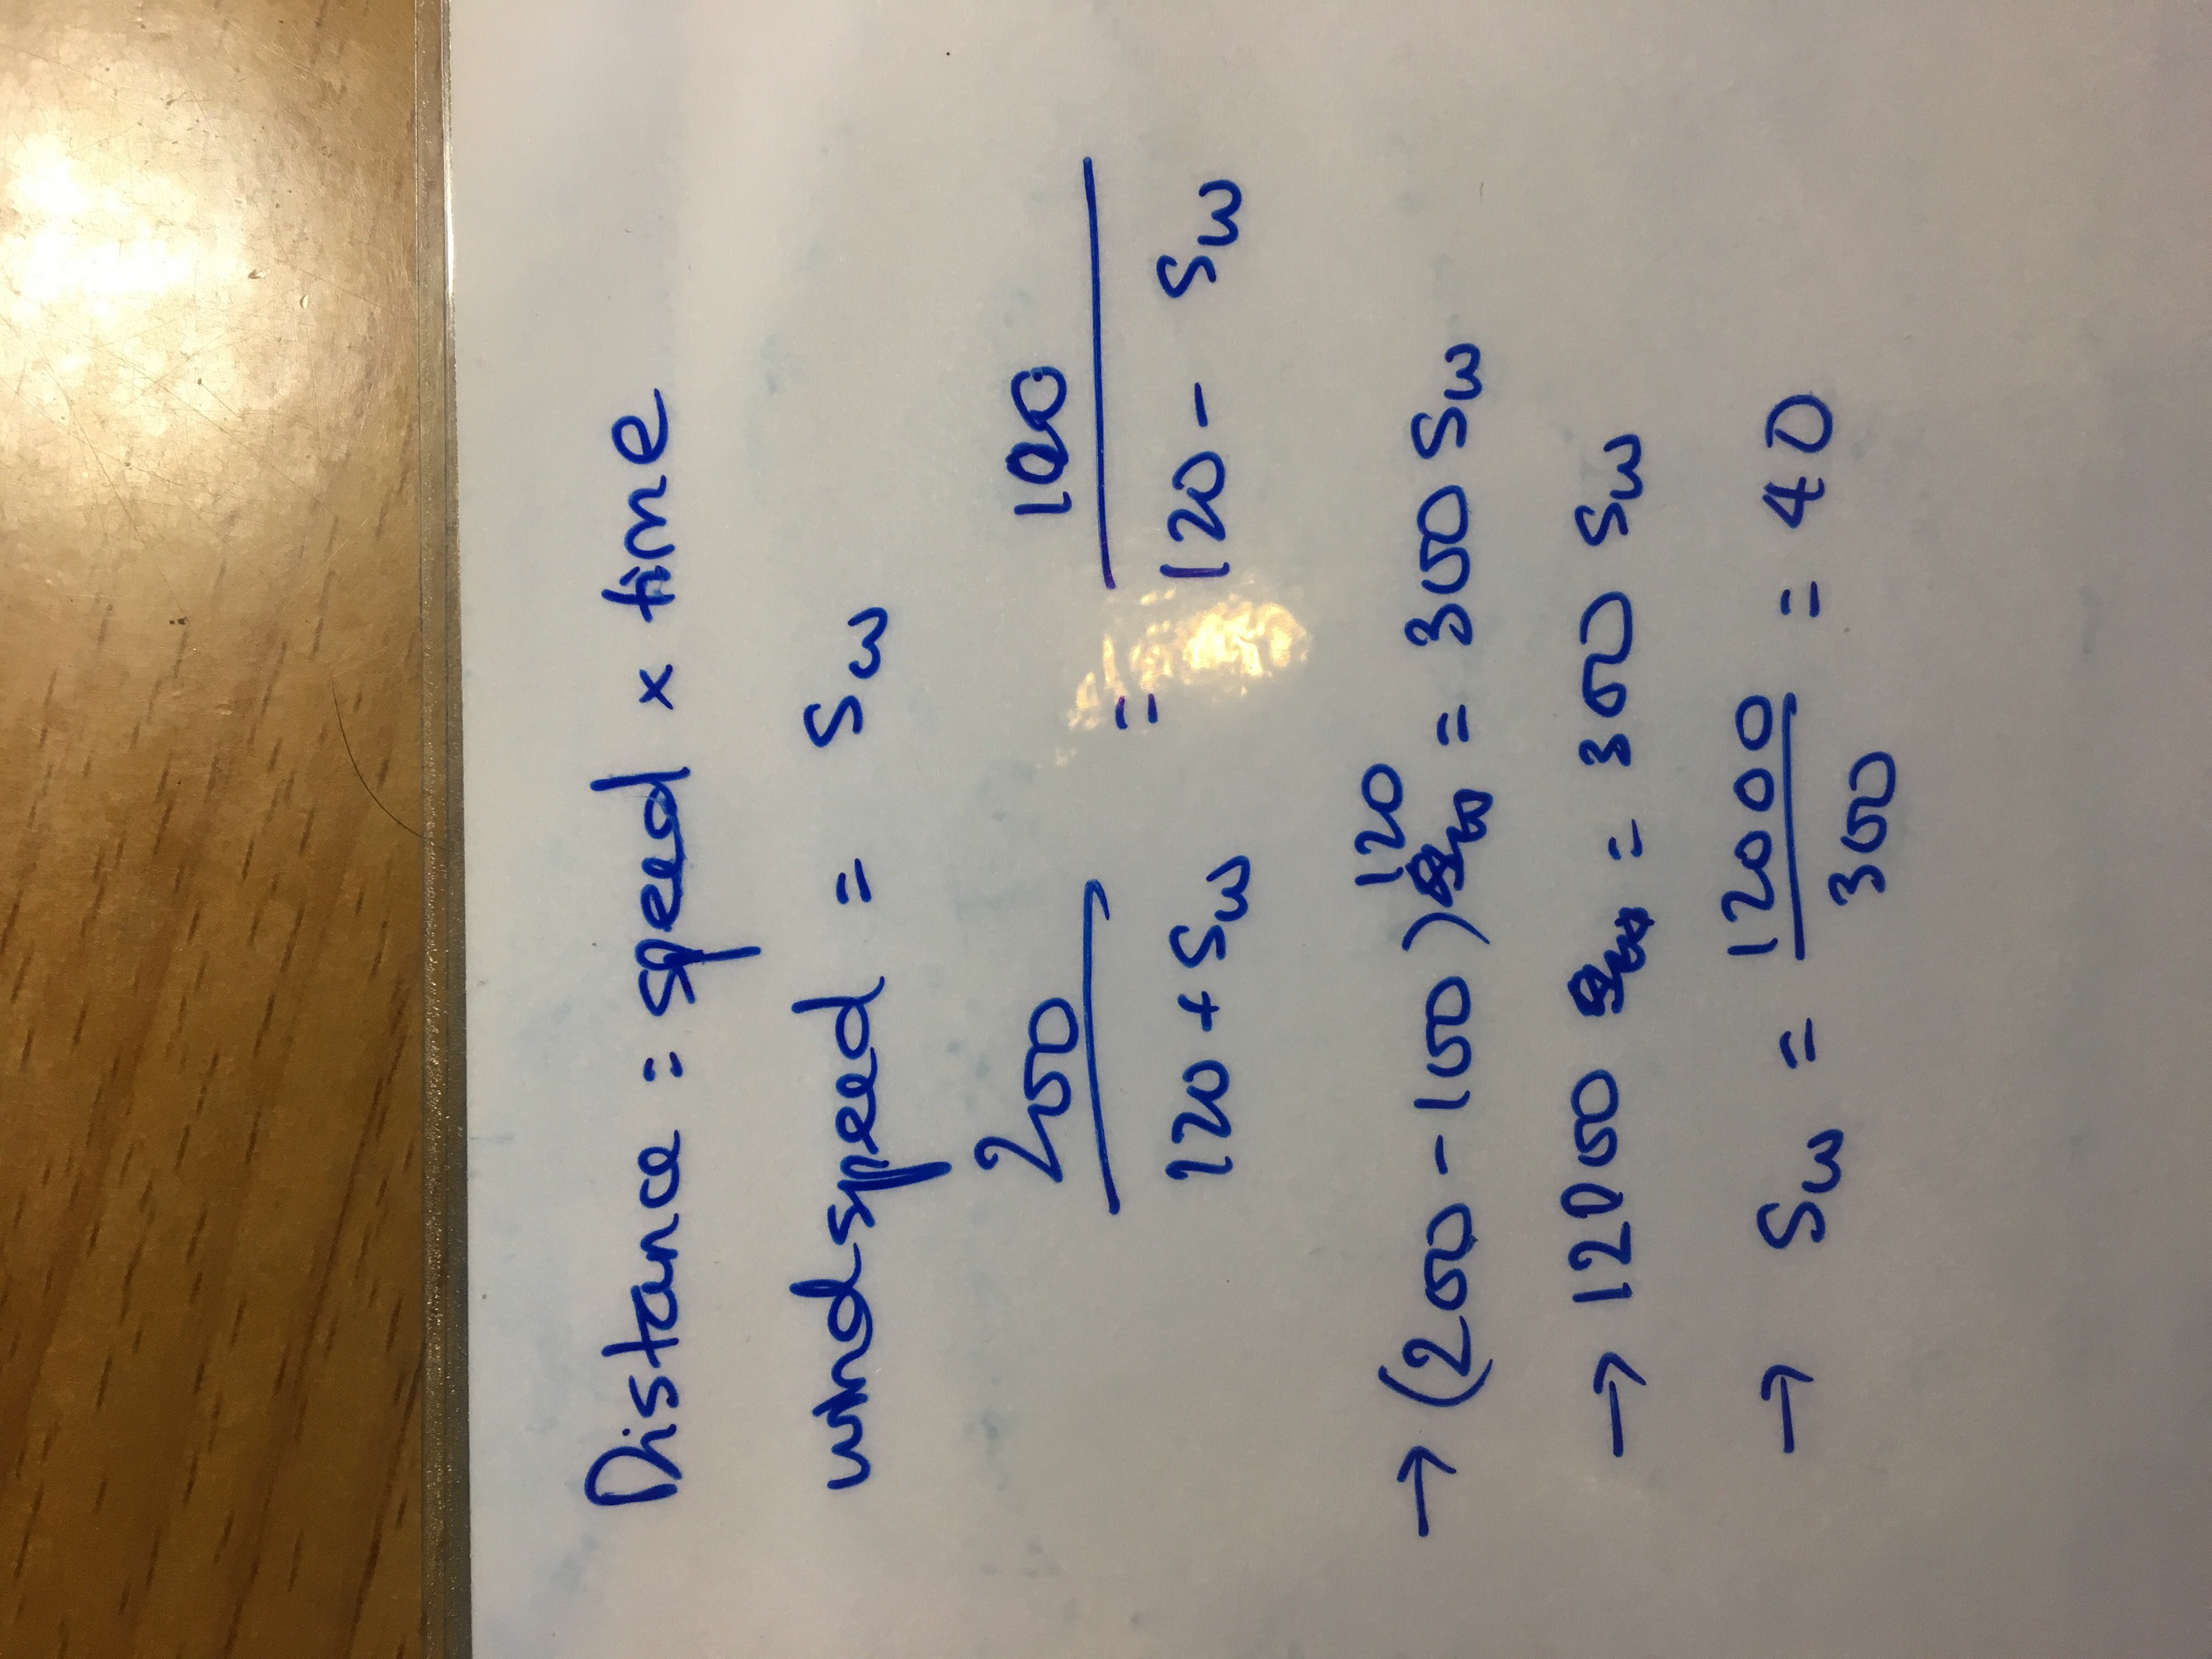 Distance = speed x time
windspeed = Sw
200 / 120 + Sw = 100 / 120 - Sw
→ (200 - 100) 120 = 300 Sw
→ 12000 = 300 Sw
→ Sw = 12000 / 300 = 40